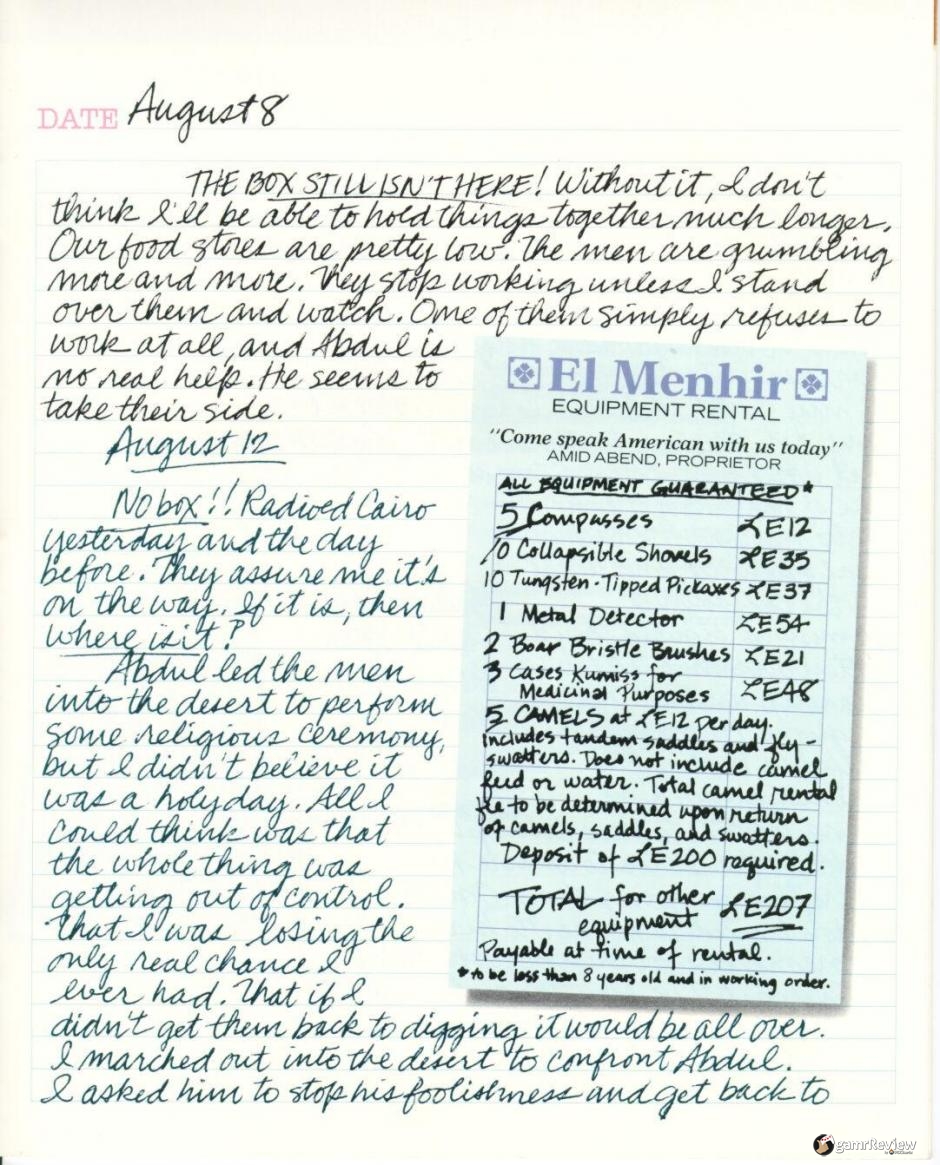 DATE August 8
THE BOX STILL ISN'T HERE! Without it, I don't
think I'll be able to hold things together much longer.
Our food stores are pretty low. The men are grumbling
more and more. They stop working unless I stand
over them and watch. One of them simply refuses to
work at all, and Abdul is
no real help. He seems to
take their side.
August 12
No box!! Radioed Cairo
yesterday and the day
before. They assure me it's
on the way. If it is, then
where is it?
Abdul led the men
into the desert to perform
some religious ceremony,
but I didn't believe it
was a holy day. All I
could think was that
the whole thing was
getting out of control.
That I was losing the
only real chance I
ever had. That if I
didn't get them back to digging it would be all over.
I marched out into the desert to confront Abdul.
I asked him to stop his foolishness and get back to
El Menhir
EQUIPMENT RENTAL
"Come speak American with us today"
AMID ABEND, PROPRIETOR
ALL EQUIPMENT GUARANTEED*
5 Compasses £E12
10 Collapsible Shovels £E35
10 Tungsten-Tipped Pickaxes £E37
1 Metal Detector £E54
2 Boar Bristle Brushes £E21
3 Cases Kumiss for
Medicinal Purposes £E48
5 CAMELS at £E12 per day.
includes tandem saddles and fly-
swatters. Does not include camel
feed or water. Total camel rental
fee to be determined upon return
of camels, saddles, and swatters.
Deposit of £E200 required.
TOTAL for other
equipment £E207
Payable at time of rental.
*to be less than 8 years old and in working order.
gamrReview